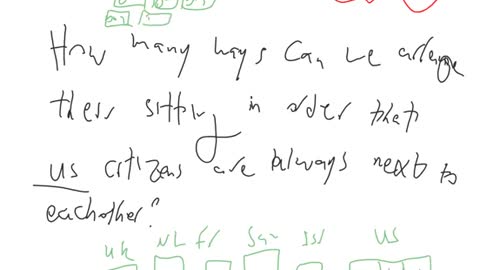 How many ways can we arrange
their sitting in order that
us citizens are always next to
eachother?
UK NL Fr Isr US